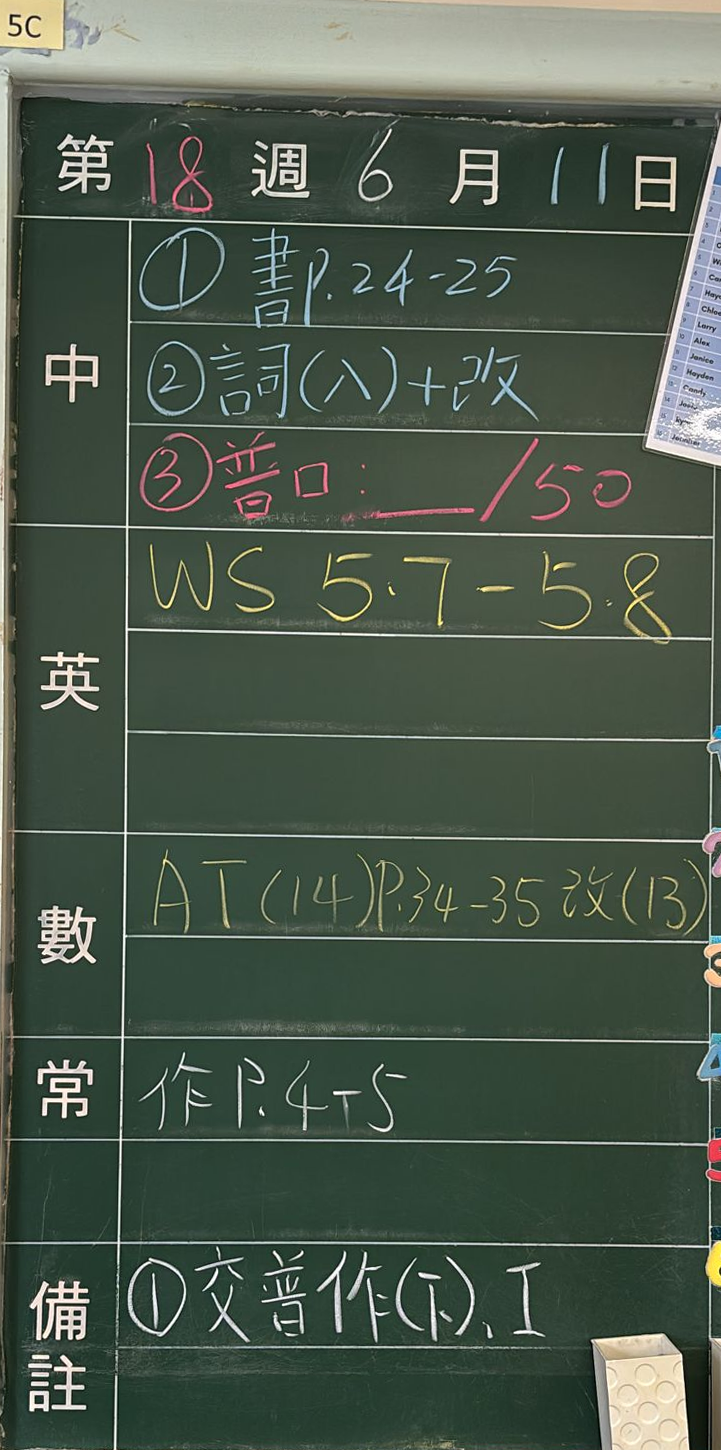 5C
第18週6月11日
中
①書P.24-25
②詞(八)+改
③普口:__/50
英
WS 5.7-5.8
數
AT(14)P.34-35改(13)
常
作P.4-5
備註
①交普作(下)、工
Larry
Alex
Janice
Hayden
Candy
Jennifer